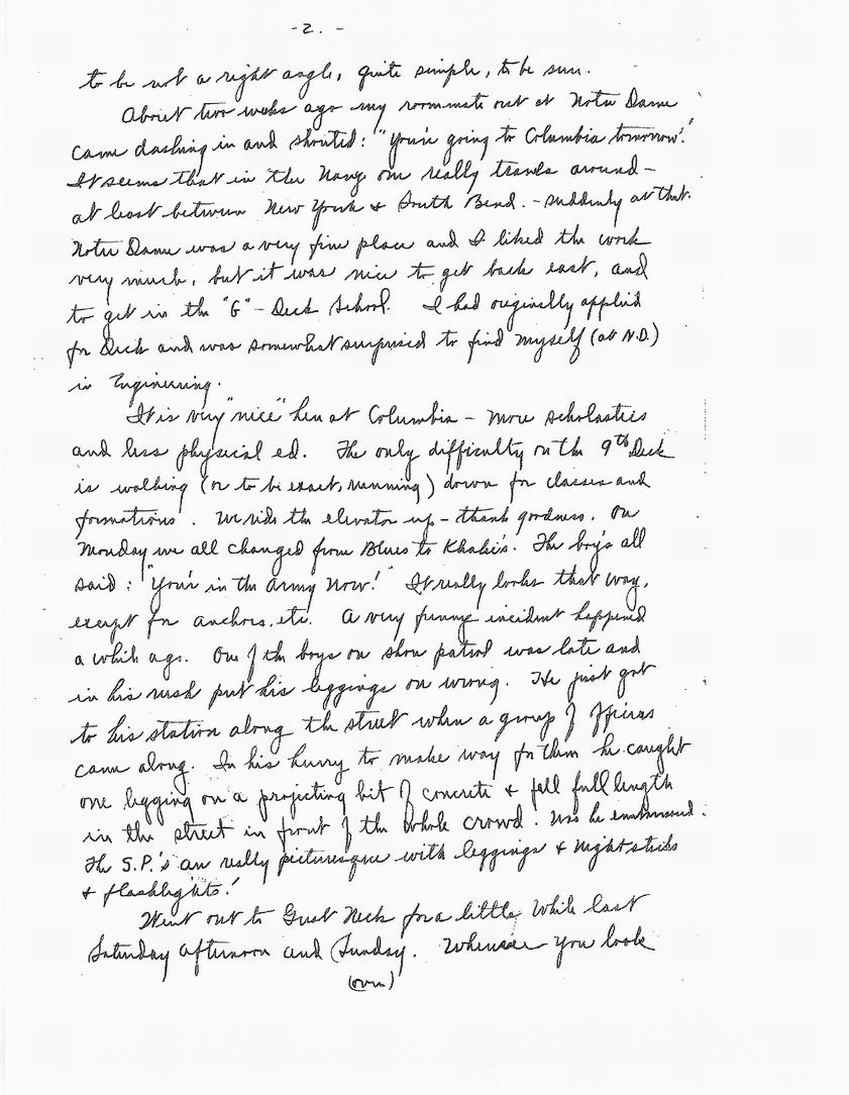 -2. -
to be not a right angle, quite simple, to be sure.
About two weeks ago my roommate out at Notre Dame
came dashing in and shouted: "You're going to Columbia tomorrow."
It seems that in the Navy one really travels around -
at least between New York & South Bend. - suddenly at that.
Notre Dame was a very fine place and I liked the work
very much, but it was nice to get back east, and
to get in the "G" - Deck School. I had originally applied
for Deck and was somewhat surprised to find myself (at N.D.)
in Engineering.
It is very "nice" here at Columbia - more scholastics
and less physical ed. The only difficulty on the 9th Deck
is walking (or to be exact, running) down for classes and
formations. We ride the elevator up - thank goodness. On
Monday we all changed from Blues to Khakis. The boys all
said: "You're in the Army Now!" It really looks that way,
except for anchors, etc. A very funny incident happened
a while ago. One of the boys on shore patrol was late and
in his rush put his leggings on wrong. He just got
to his station along the street when a group of officers
came along. In his hurry to make way for them he caught
one legging on a projecting bit of concrete & fell full length
in the street in front of the whole crowd. Was he embarrassed.
The S.P.'s are really picturesque with leggings & nightsticks
& flashlights!
Went out to Great Neck for a little while last
Saturday afternoon and Sunday. Whenever you look
(over)